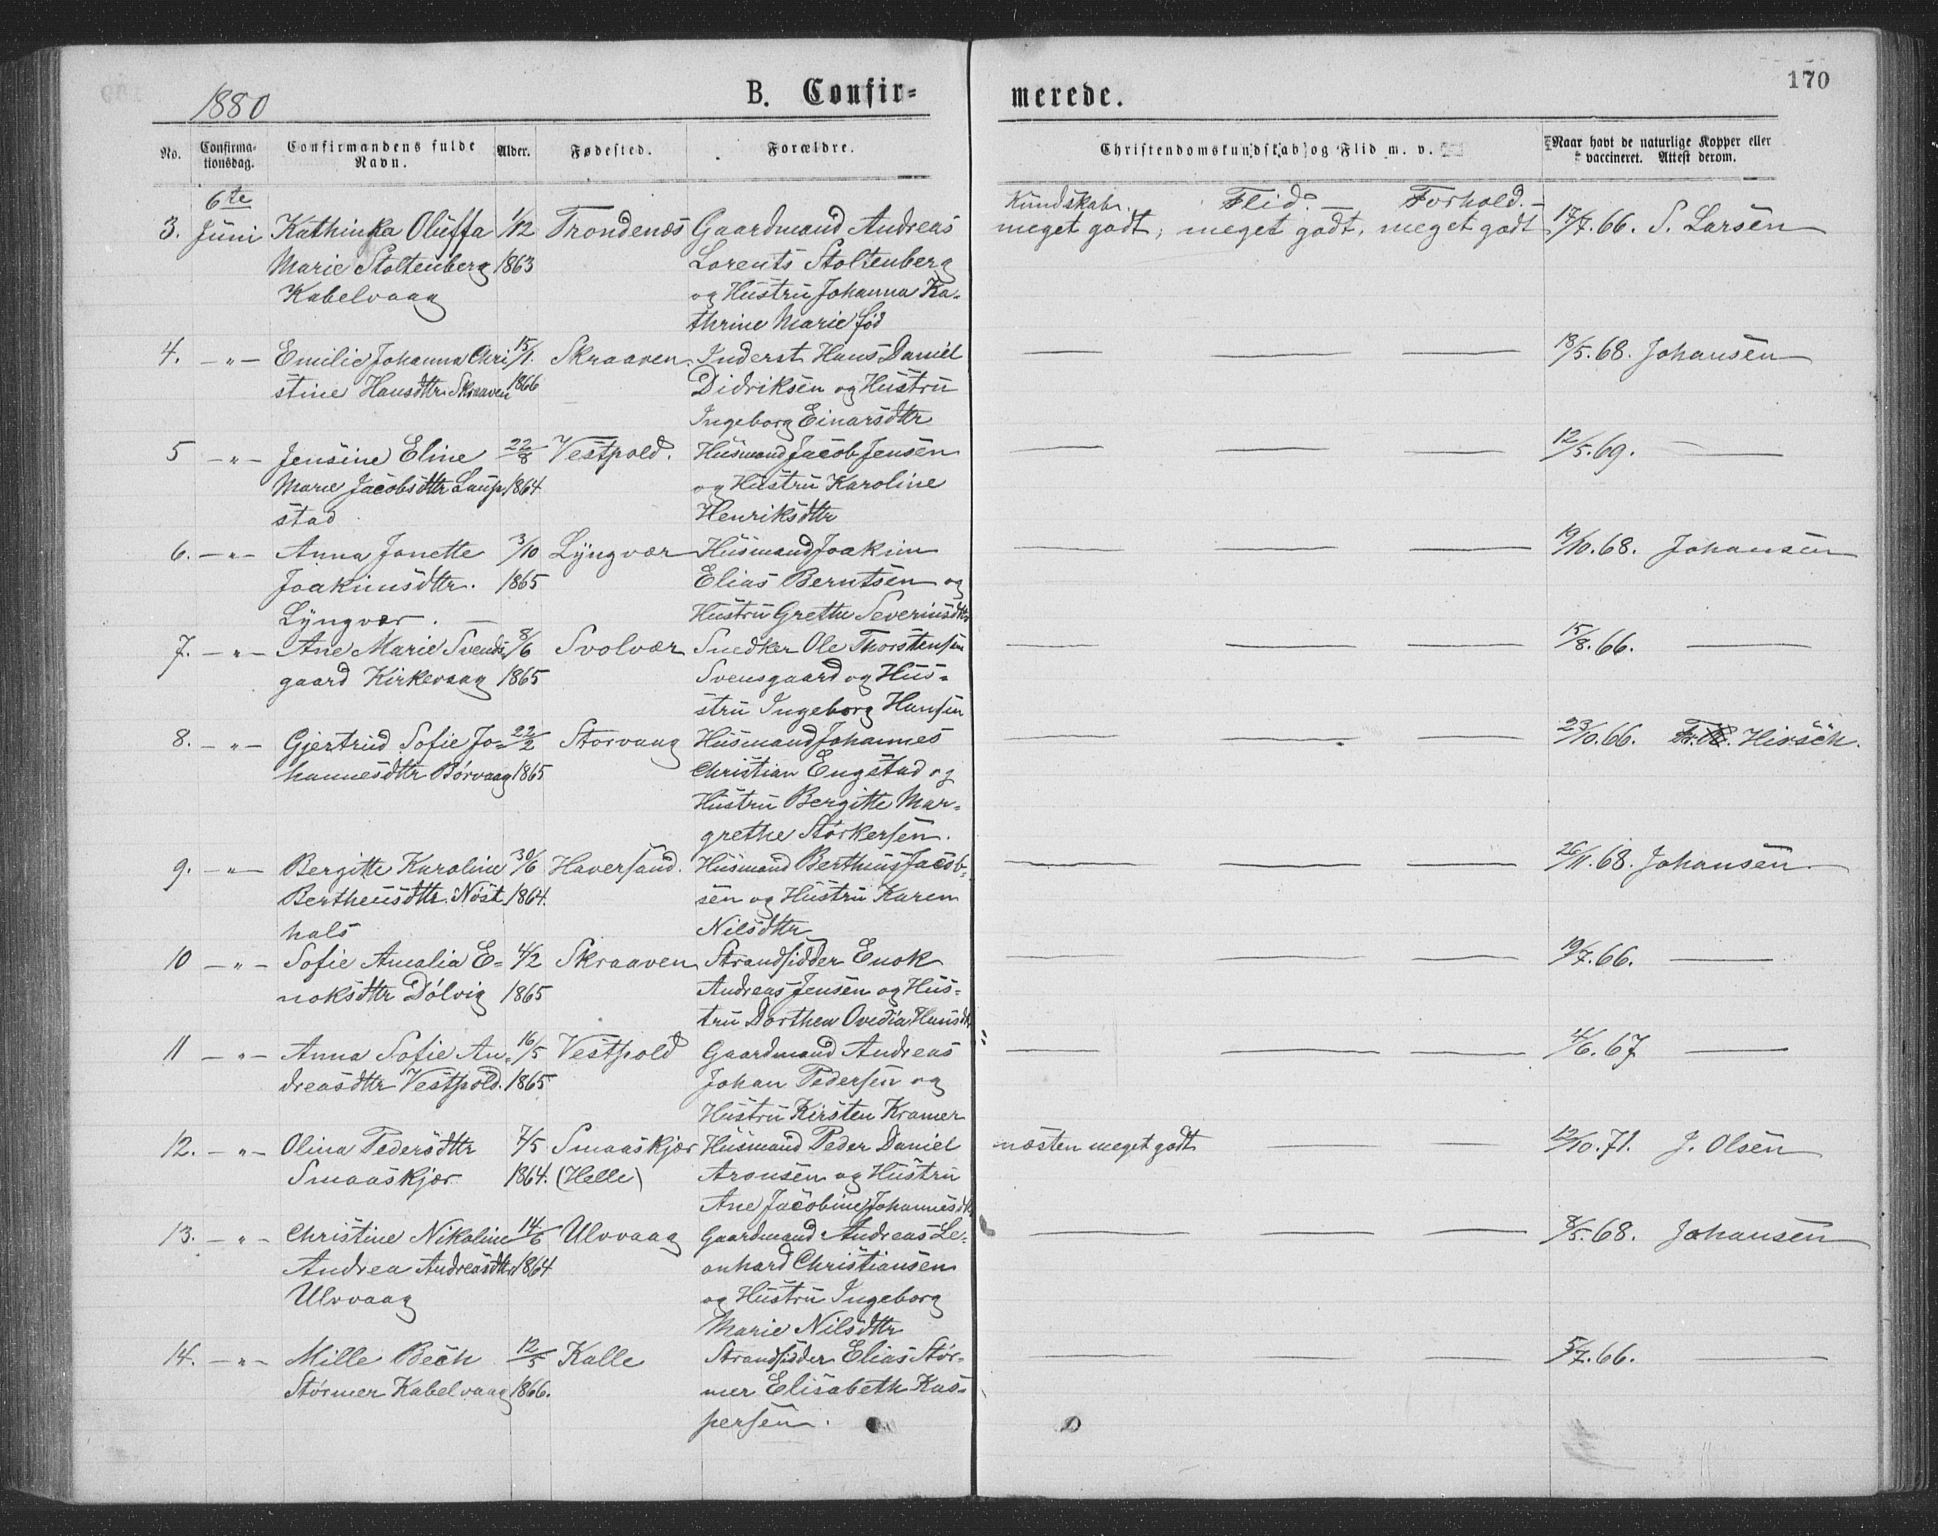 1880
B. Confir-
merede.
170
No.
Confirma-
tionsdag.
Confirmandens fulde
Navn.
Alder.
Fødested.
Forældre.
Christendomskundskab og Flid m. v.
Naar havt de naturlige Kopper eller
vaccineret. Attest derom.
6te
Kundskab. Flid. — Forhold. —
3. Juni Kathinka Oluffa 1/12 Trondenæs Gaardmand Andreas meget godt, meget godt, meget godt 17/7.66. S. Larsen
Marie Stoltenberg 1863 Lorents Stoltenberg
Kabelvaag og Hustru Johanna Ka-
thrine Marie fød
4. — " — Emilie Johanna Chri 15/1. Skraaven. Inderst Hans Daniel — — — 18/5.68. Johansen
stine Hansdttr Skraaven 1866 Didriksen og Hustru
Ingeborg Einarsdttr
5 — " — Jensine Eline 22/8 Vestpold. Husmand Jacob Jensen — — — 12/5.69. —
Marie Jacobsdttr Laup 1864 og Hustru Karoline
stad Henriksdttr
6. — " — Anna Janette 3/10 Lyngvær Husmand Joakim — — — 19/10.68. Johansen
Joakimsdttr. 1865 Elias Berntsen og
Lyngvær. — Hustru Grethe Severinsdttr
7. — " — Ane Marie Svends 8/6 Svolvær Snedker Ole Thorstensen — — — 15/8.66. —
gaard Kirkevaag 1865 Svensgaard og Hus-
stru Ingeborg Hansen
8. — " — Gjertrud Sofie Jo- 22/2 Storvaag Husmand Johannes — — — 23/10.66. Hirsch.
hannesdttr Børvaag 1865 Christian Engstad og
Hustru Bergitte Mar-
grethe Størkersen.
9. — " — Bergitte Karoline 30/6 Haversand. Husmand Bertheus Jacob- — — — 26/11.68. Johansen.
Bertheusdttr. Nøst 1864. sen og Hustru Karen
hals Nilsdttr
10 — " — Sofie Amalia E- 4/2 Skraaven Strandsidder Enok — — — 19/7.66. —
noksdttr Dølvig 1865 Andreas Jensen og Hus-
tru Dorthea Ovedia Hansdtr
11 — " — Anna Sofie An- 16/5 Vestpold Gaardmand Andreas — — — 4/6.67 —
dreasdttr Vestpold. 1865 Johan Pedersen og
Hustru Kirsten Kramer
12. — " — Olina Pedersdttr 7/5 Smaaskjær Husmand Peder Daniel næsten meget godt — — 12/10.71. J. Olsen
Smaaskjær 1864. (Helle) Aronsen og Hustru
Ane Jacobine Johannesdtr
13. — " — Christine Nikoline 14/6 Ulvvaag Gaardmand Andreas Le- — — — 8/5.68. Johansen
Andrea Andreasdttr 1864 onhard Christiansen
Ulvvaag og Hustru Ingeborg
Marie Nilsdttr
14. — " — Mille Bech 12/5 Kalle Strandsidder Elias Stør- — — — 5/7.66. —
Størmer Kabelvaag 1866. mer Elisabeth Kas-
persen.